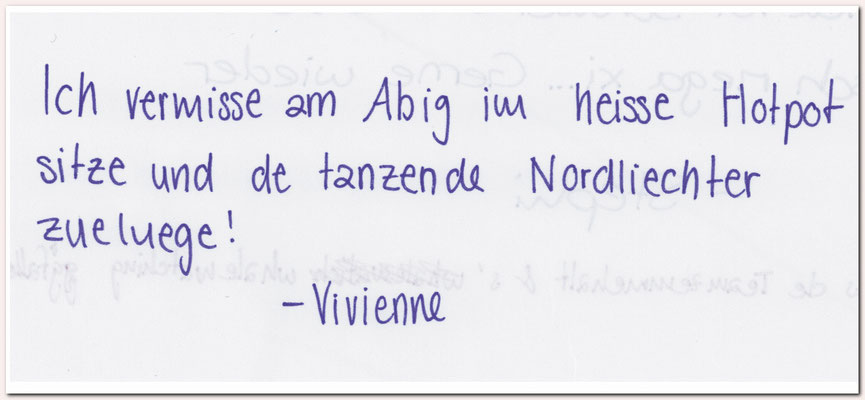 Ich vermisse am Abig im heisse Hotpot
sitze und de tanzende Nordliechter
zueluege!
– Vivienne